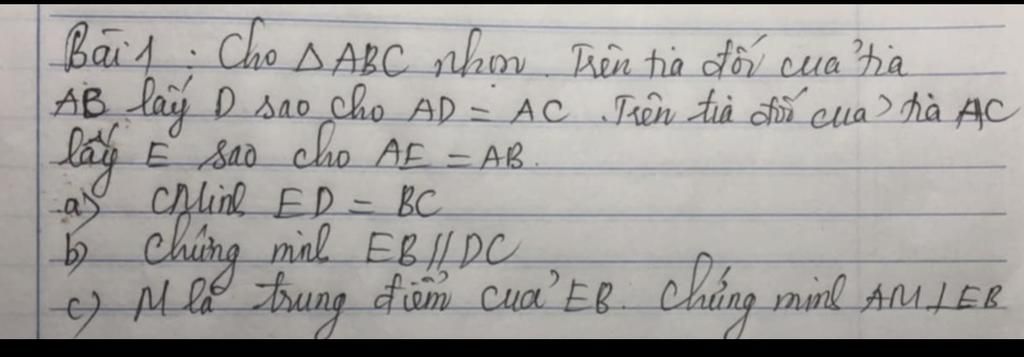 Bài 1 : Cho Δ ABC nhọn. Trên tia đối của tia
AB lấy D sao cho AD = AC. Trên tia đối của tia AC
lấy E sao cho AE = AB.
a) CMinh ED = BC
b) Chứng minh EB // DC
c) M là trung điểm của EB. Chứng minh AM ⊥ EB